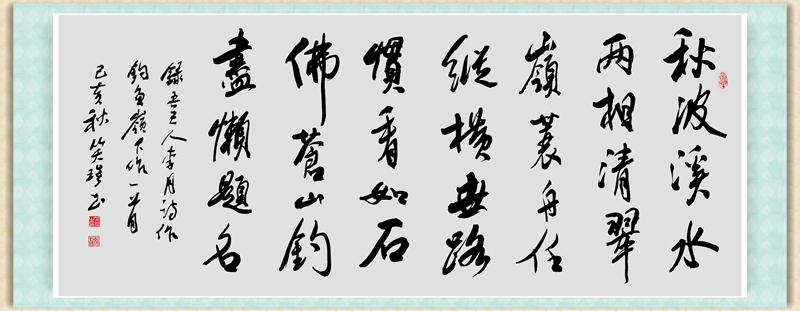 秋波溪水
两相清翠
嶺蓑舟任
縱橫世路
慣看如石
佛蒼山釣
盡懶題名
錄吾人李月詩作
釣魚嶺下作一首
己亥秋笑书